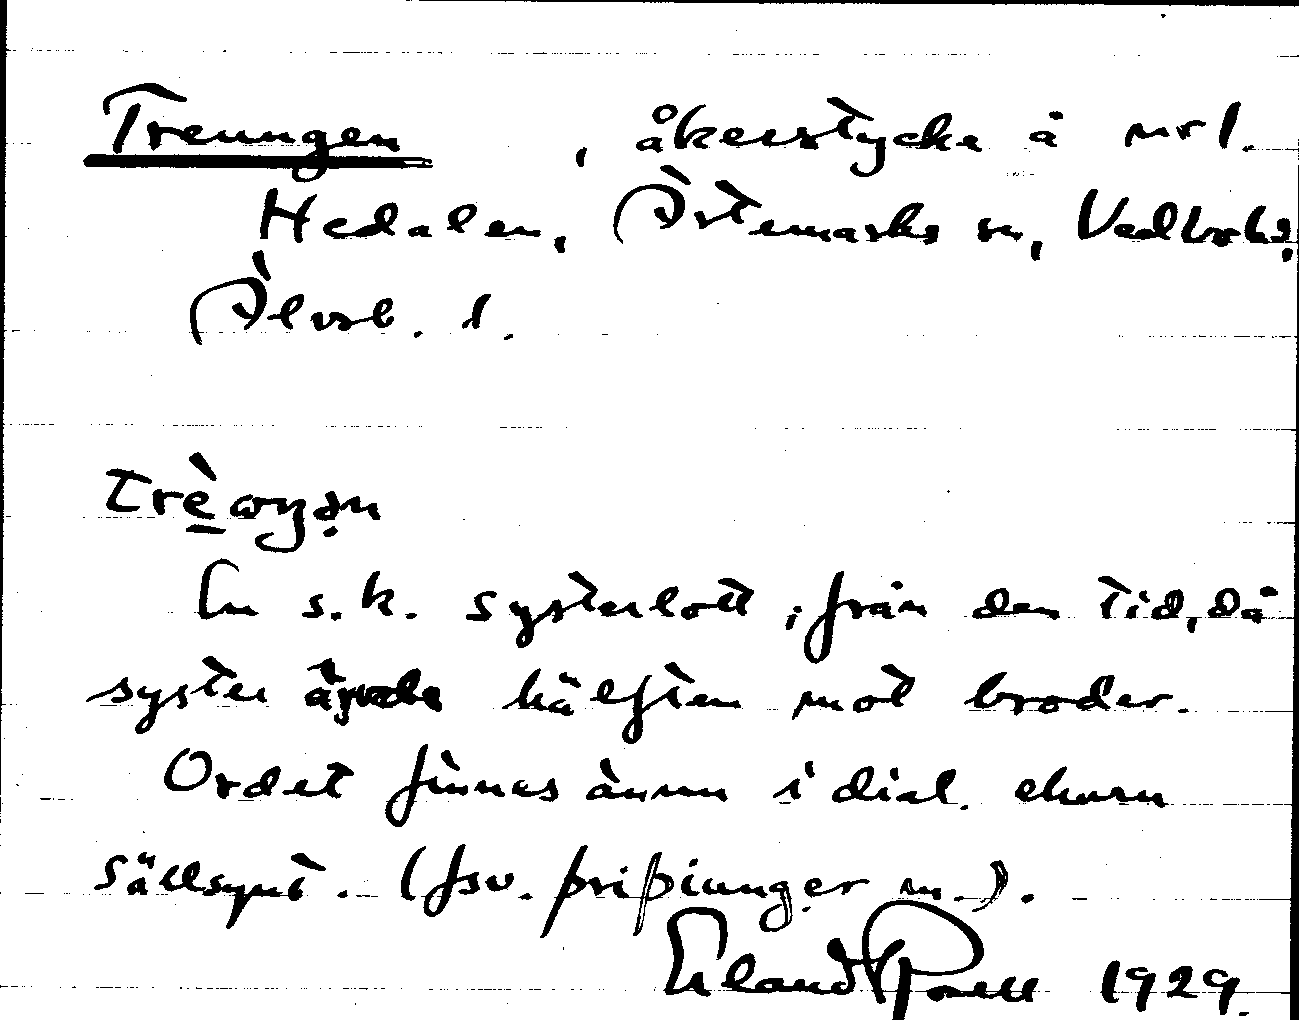 Treungen , åkerstycke å nr 1.
Hedalen, Ärtemarks sn, Vedbo hd,
Älvsb. l.
trè̱ɷŋə̣n
En s.k. systerlott, från den tid, då
syster ärvde hälften mot broder.
Ordet finnes ännu i dial. ehuru
sällsynt. (fsv. þriþiunger m.).
Erland Rosell 1929.